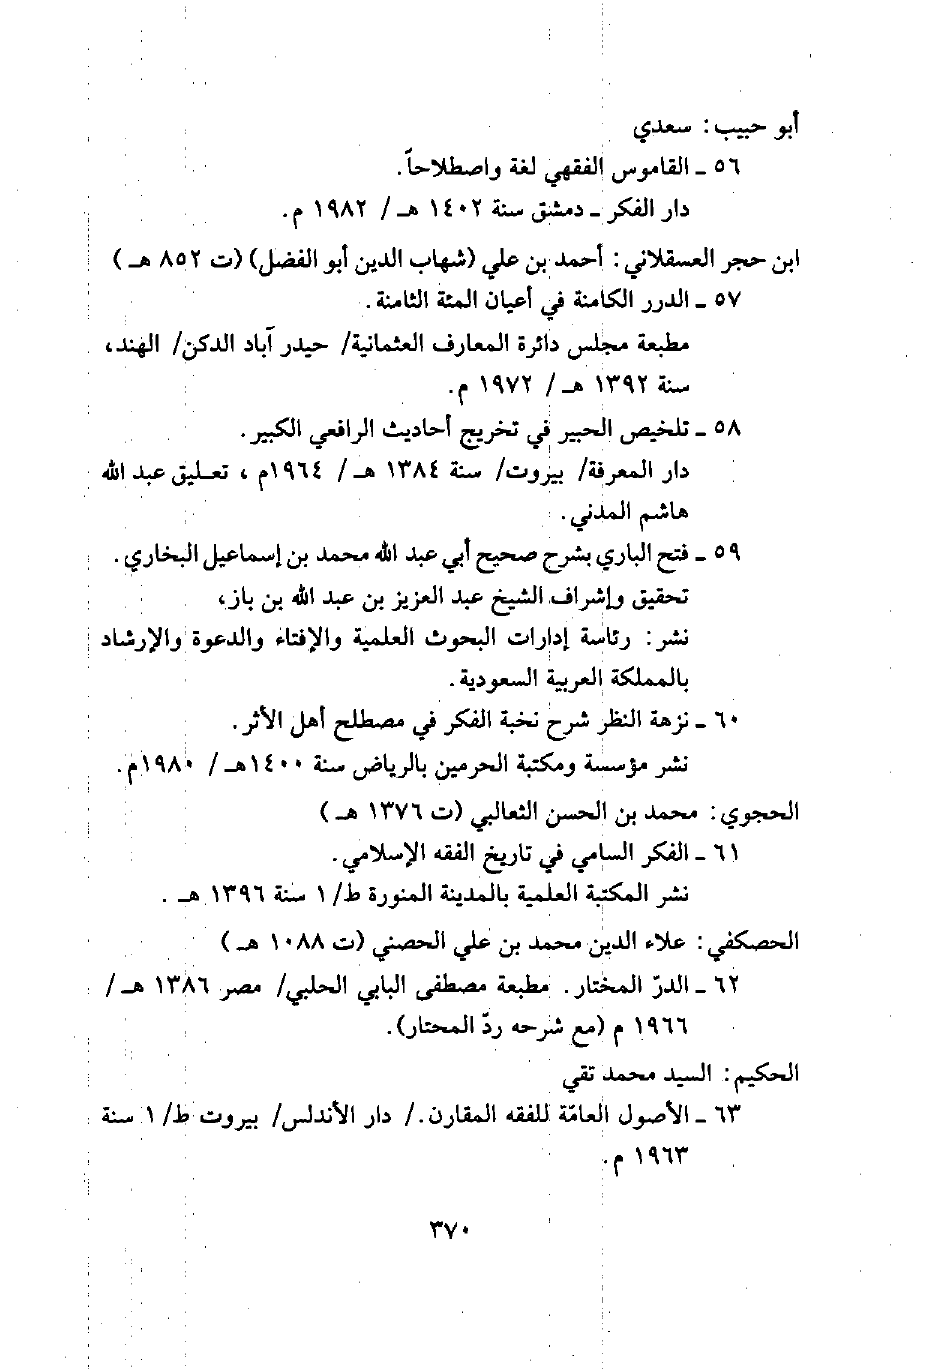 أبو حبيب: سعدي
٥٦ ـ القاموس الفقهي لغة واصطلاحاً.
دار الفكر ـ دمشق سنة ١٤٠٢ هـ / ١٩٨٢ م.
ابن حجر العسقلاني: أحمد بن علي (شهاب الدين أبو الفضل) (ت ٨٥٢ هـ)
٥٧ ـ الدرر الكامنة في أعيان المئة الثامنة.
مطبعة مجلس دائرة المعارف العثمانية/ حيدر آباد الدكن/ الهند،
سنة ١٣٩٢ هـ / ١٩٧٢ م.
٥٨ ـ تلخيص الحبير في تخريج أحاديث الرافعي الكبير.
دار المعرفة/ بيروت/ سنة ١٣٨٤ هـ / ١٩٦٤م ، تعليق عبد الله
هاشم المدني.
٥٩ ـ فتح الباري بشرح صحيح أبي عبد الله محمد بن إسماعيل البخاري.
تحقيق وإشراف الشيخ عبد العزيز بن عبد الله بن باز،
نشر: رئاسة إدارات البحوث العلمية والإفتاء والدعوة والإرشاد
بالمملكة العربية السعودية.
٦٠ ـ نزهة النظر شرح نخبة الفكر في مصطلح أهل الأثر.
نشر مؤسسة ومكتبة الحرمين بالرياض سنة ١٤٠٠هـ / ١٩٨٠م.
الحجوي: محمد بن الحسن الثعالبي (ت ١٣٧٦ هـ)
٦١ ـ الفكر السامي في تاريخ الفقه الإسلامي.
نشر المكتبة العلمية بالمدينة المنورة ط/ ١ سنة ١٣٩٦ هـ .
الحصكفي: علاء الدين محمد بن علي الحصني (ت ١٠٨٨ هـ)
٦٢ ـ الدرّ المختار. مطبعة مصطفى البابي الحلبي/ مصر ١٣٨٦ هـ /
١٩٦٦ م (مع شرحه ردّ المحتار).
الحكيم: السيد محمد تقي
٦٣ ـ الأصول العامّة للفقه المقارن. / دار الأندلس/ بيروت ط/ ١ سنة
١٩٦٣ م.
٣٧٠